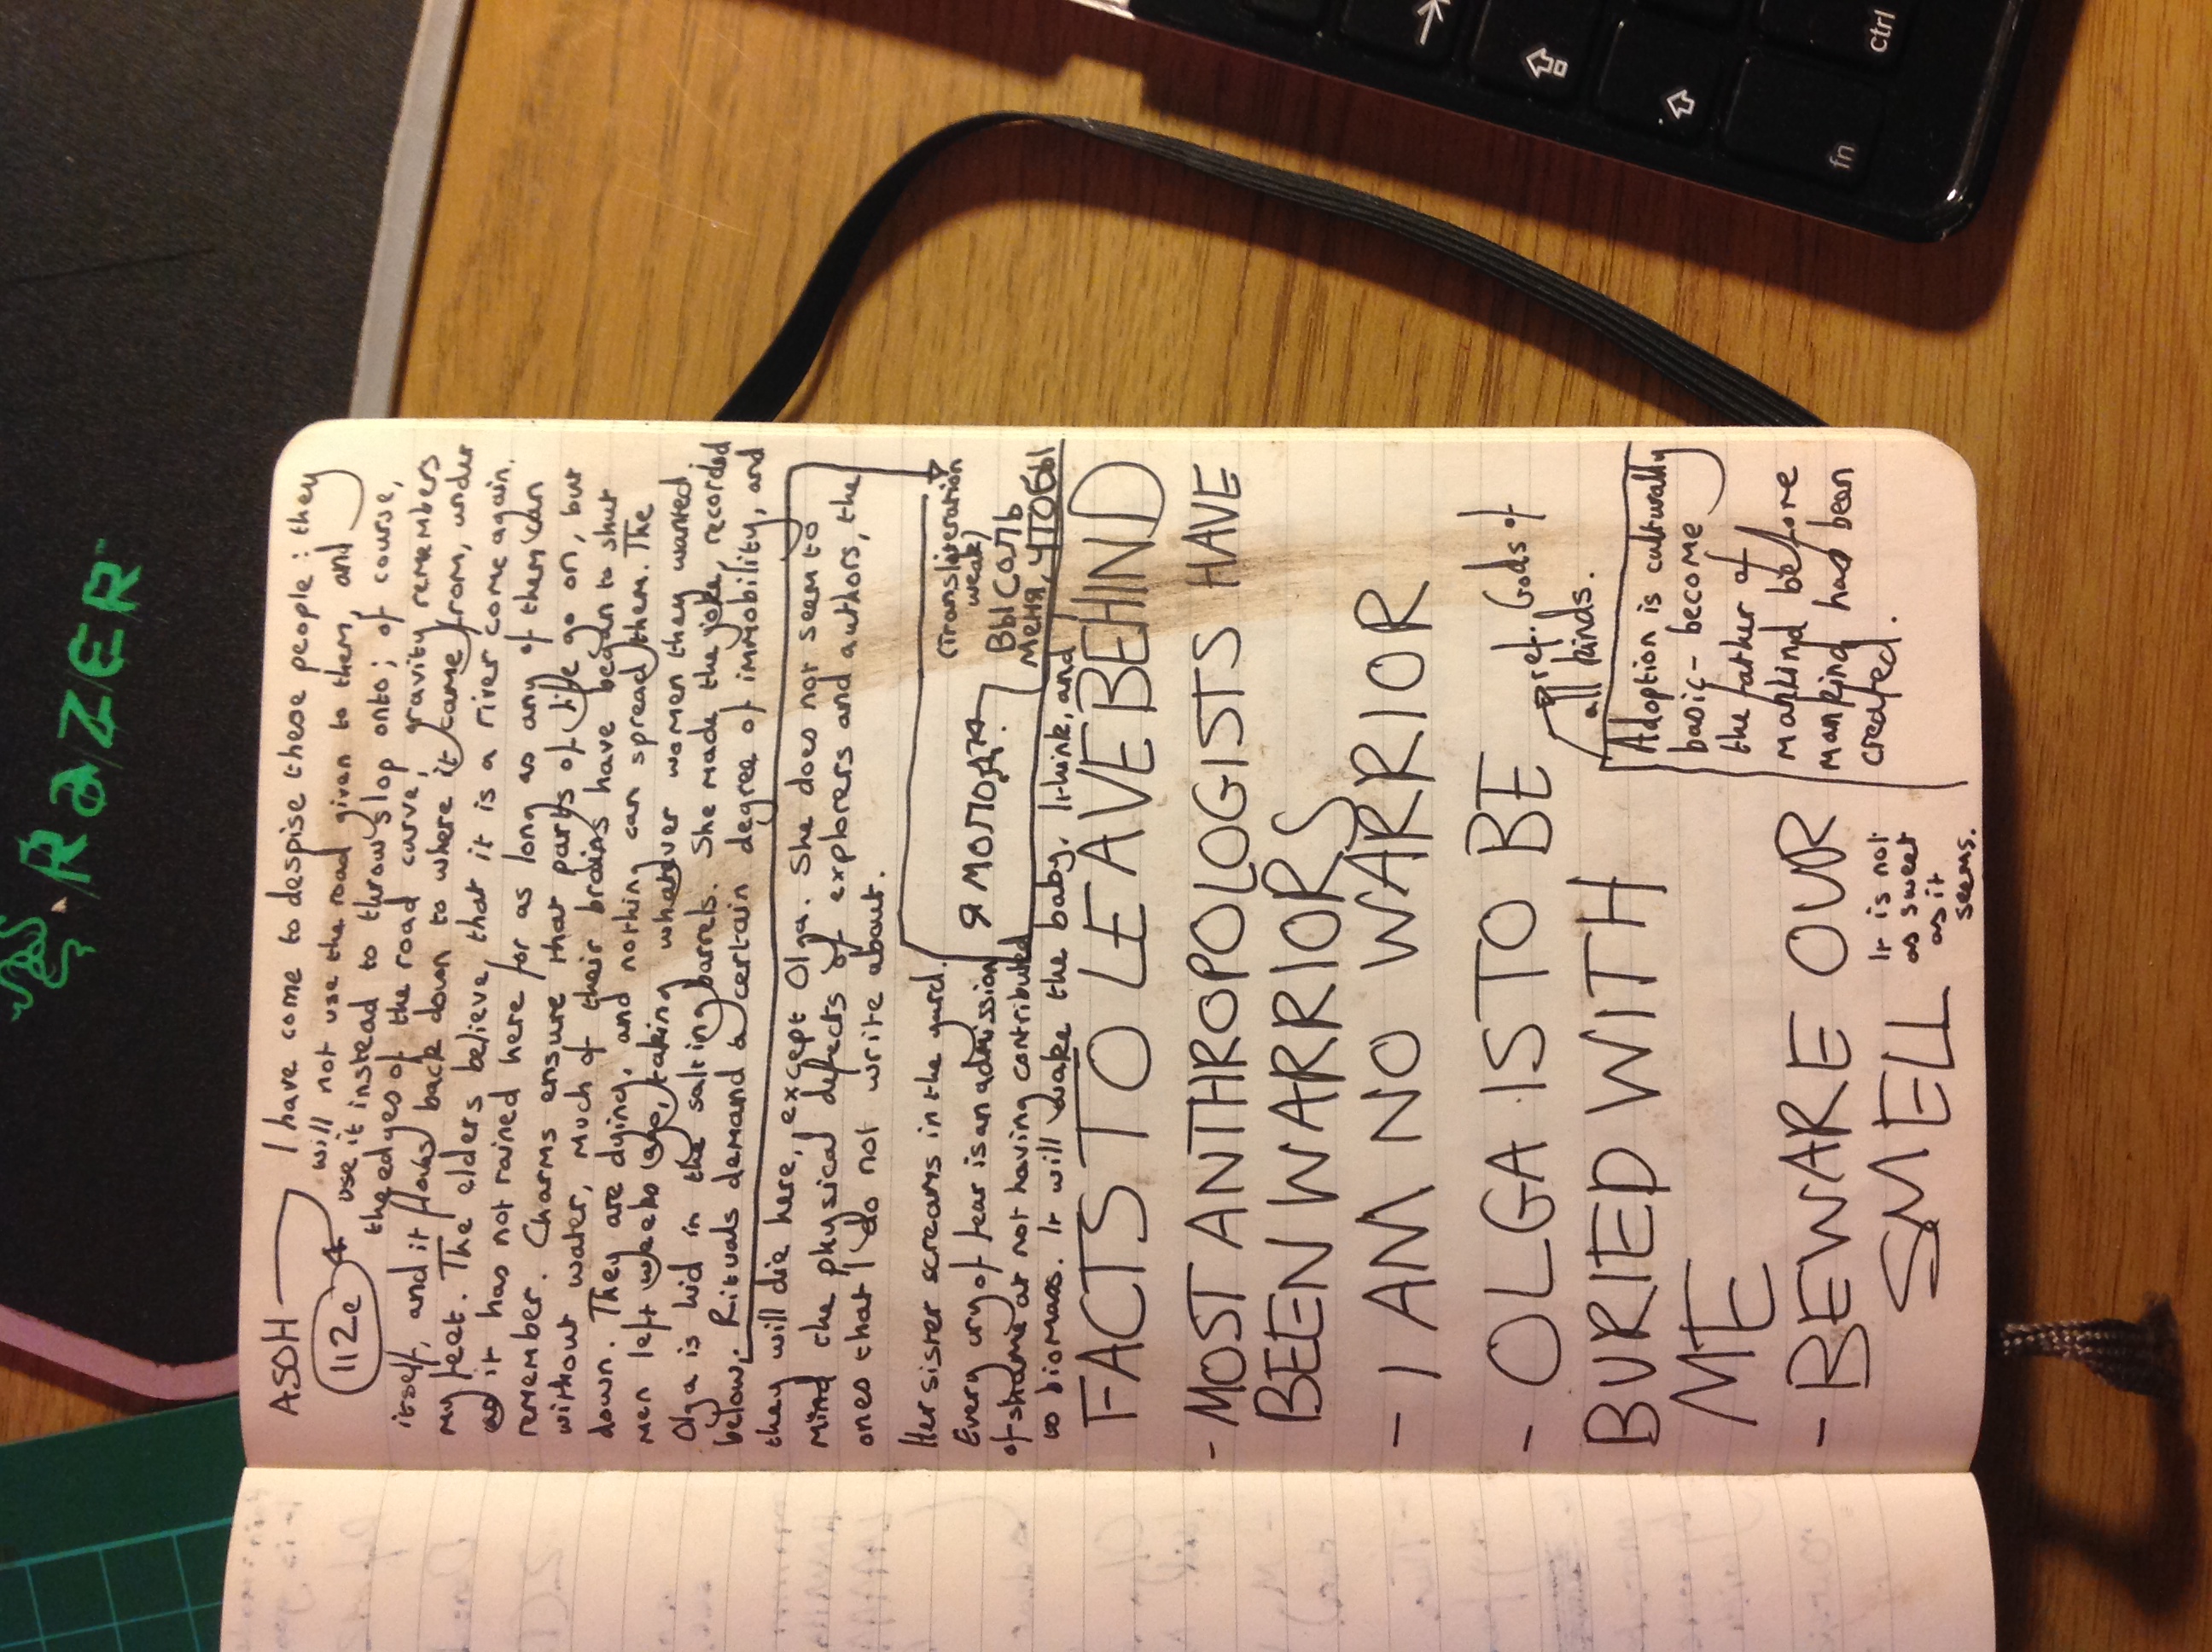 RAZER
ASOH
112e
I have come to despise these people: they
will not use the road given to them, and
use it instead to throw slop onto; of course,
the edges of the road curve, gravity remembers
itself, and it flows back down to where it came from, under
my feet. The elders believe, that it is a river come again,
as it has not rained here for as long as any of them can
remember. Charms ensure that parts of life go on, but
without water, much of their brains have began to shut
down. They are dying, and nothing can spread them. The
men left weeks ago, taking whatever women they wanted.
Olga is hid in the salting barrels. She made the joke, recorded
below. Rituals demand a certain degree of immobility, and
they will die here, except Olga. She does not seem to
mind the physical defects of explorers and authors, the
ones that I do not write about.
Her sister screams in the yard.
Every cry of fear is an admission
of shame at not having contributed
to biomass. It will wake the baby, I think, and
(Transliteration
weak)
Я
Вы СОЛЬ
МеНЯ, ЧТОБЫ
FACTS TO LEAVE BEHIND
- MOST ANTHROPOLOGISTS HAVE
BEEN WARRIORS
- I AM NO WARRIOR
- OLGA IS TO BE
BURIED WITH
ME
- BEWARE OUR
SMELL
It is not
as sweet
as it
seems.
ref. Gods of
all kinds.
Adoption is culturally
basic - become
the father of
mankind before
mankind has been
created.
fn
ctrl